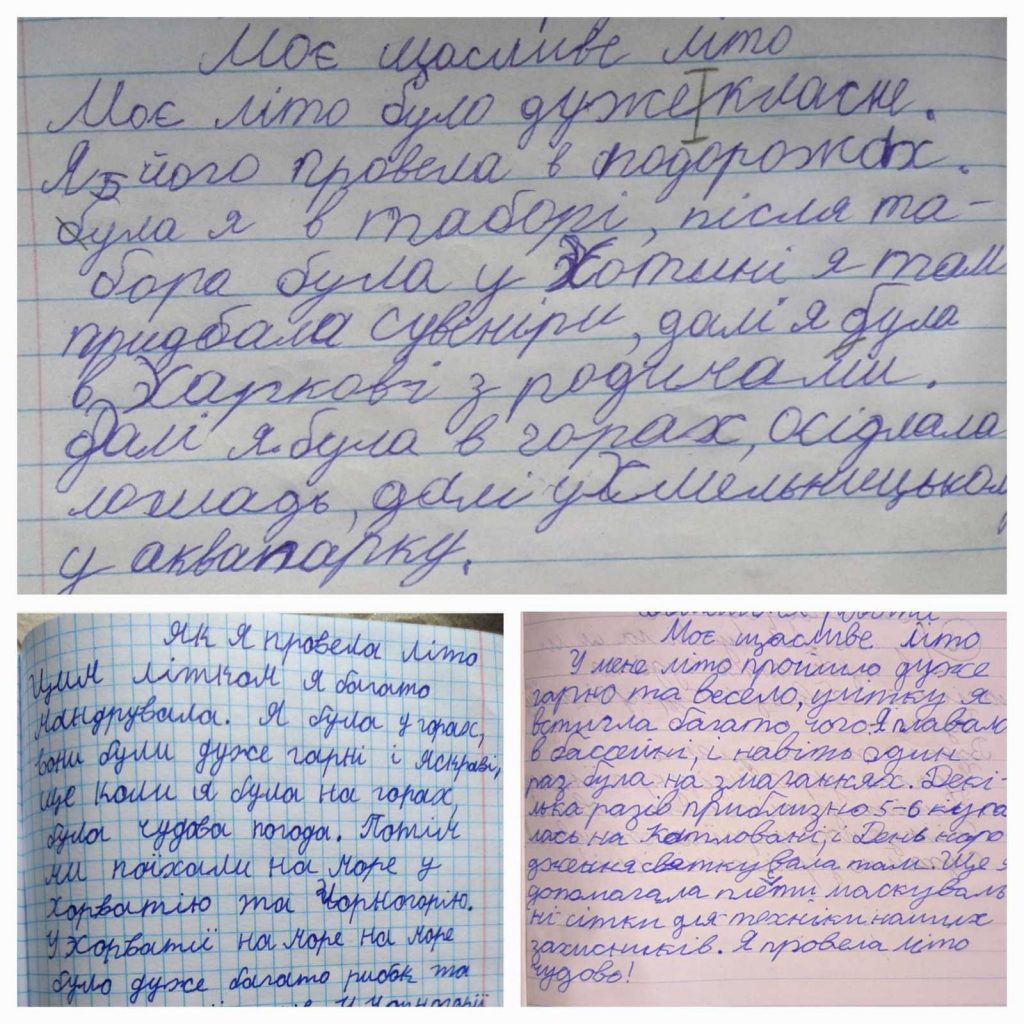 Моє щасливе літо
Моє літо було дуже класне.
Я й його провела в подорожах.
Була я в таборі, після та-
бора була у Хотині я там
придбала сувеніри, далі я була
в Харкові з родичами.
Далі я була в горах, осідлала
лошадь, далі у Хмельницьком
у аквапарку.
Як я провела літо
Цим літком я багато
мандрувала. Я була у горах,
вони були дуже гарні і яскраві,
ще коли я була на горах,
була чудова погода. Потім
ми поїхали на море у
Хорватію та Чорногорію.
У Хорватії на море на море
було дуже багато рибок та
Моє щасливе літо
У мене літо пройшло дуже
гарно та весело, улітку я
встигла багато чого. Я плавала
в бассейні, і навіть один
раз була на змаганнях. Декі-
лька разів приблизно 5-6 купа
лась на Котловані, і День наро
дження святкувала там. Ще я
допомагала плести маскуваль
ні сітки для техніки наших
захисників. Я провела літо
чудово!